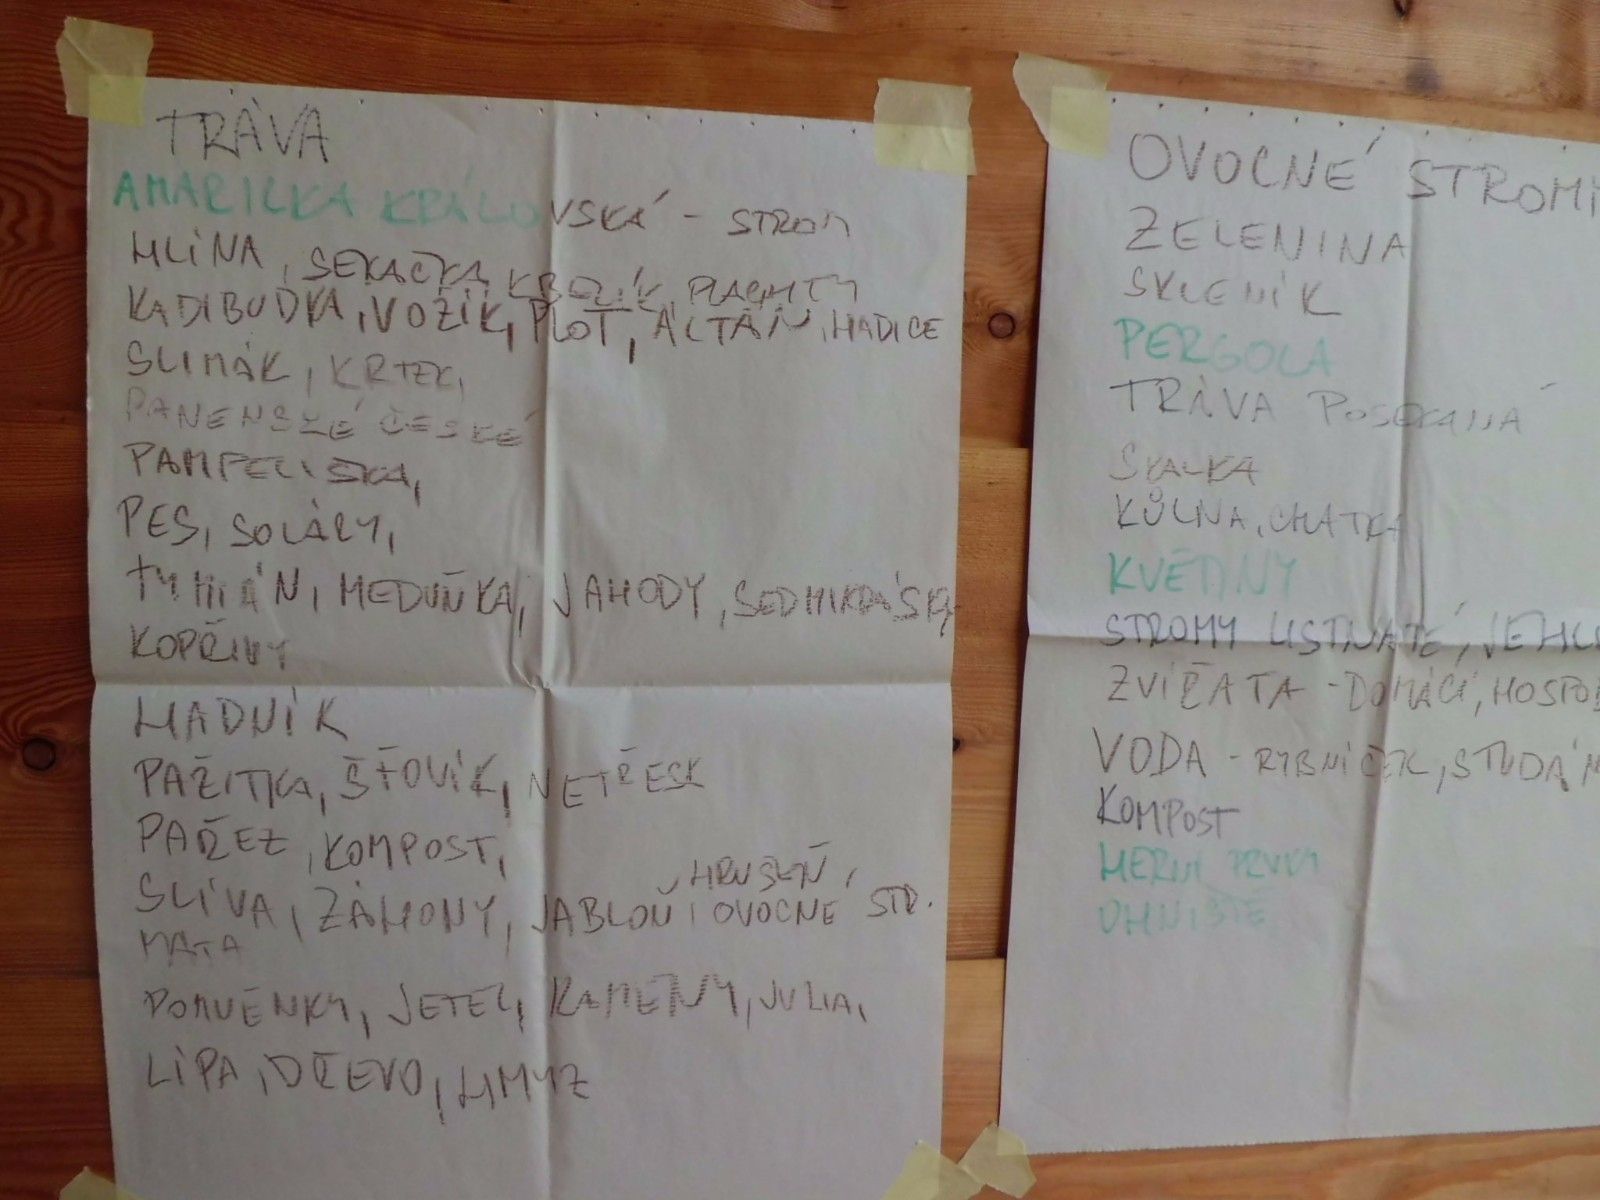 TRÁVA
AMARILKA KRÁLOVSKÁ - STROM
HLÍNA, SEKAČKA, KBELÍK, PLACHTY
KADIBUDKA, VOZÍK, PLOT, ALTÁN, HADICE
SLIMÁK, KRTEK,
PANENSKÉ ČESKÉ
PAMPELIŠKA,
PES, SOLÁRY,
TYMIÁN, MEDUŇKA, JAHODY, SEDMIKRÁSKA,
KOPŘIVY
HADNÍK
PAŽITKA, ŠŤOVÍK, NETŘESK
PAŘEZ, KOMPOST,
HRUŠEŇ,
SLÍVA, ZÁHONY, JABLOŇ, OVOCNÉ STR.
MÁTA
POMNĚNKY, JETEL, KAMENY, JULIA,
LÍPA, DŘEVO, HMYZ
OVOCNÉ STROMY
ZELENINA
SKLENÍK
PERGOLA
TRÁVA POSEKANÁ
SKALKA
KŮLNA, CHATKA
KVĚTINY
STROMY LISTNATÉ, JEHL
ZVÍŘATA - DOMÁCÍ, HOSPO
VODA - RYBNÍČEK, STUDÁN
KOMPOST
HERNÍ PRVKY
OHNIŠTĚ